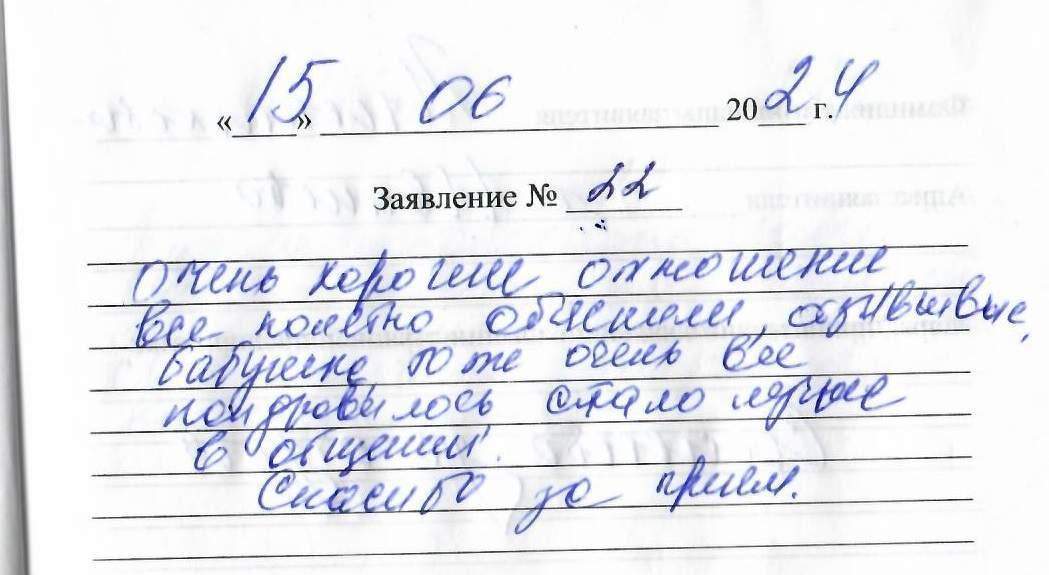 «15» 06 2024 г.
Заявление № 22
Очень хорошие отношение
все понятно обяснили, отзывывые,
бабушке тоже очень все
пондровилось стало лучше
в общении.
Спасибо за прием.